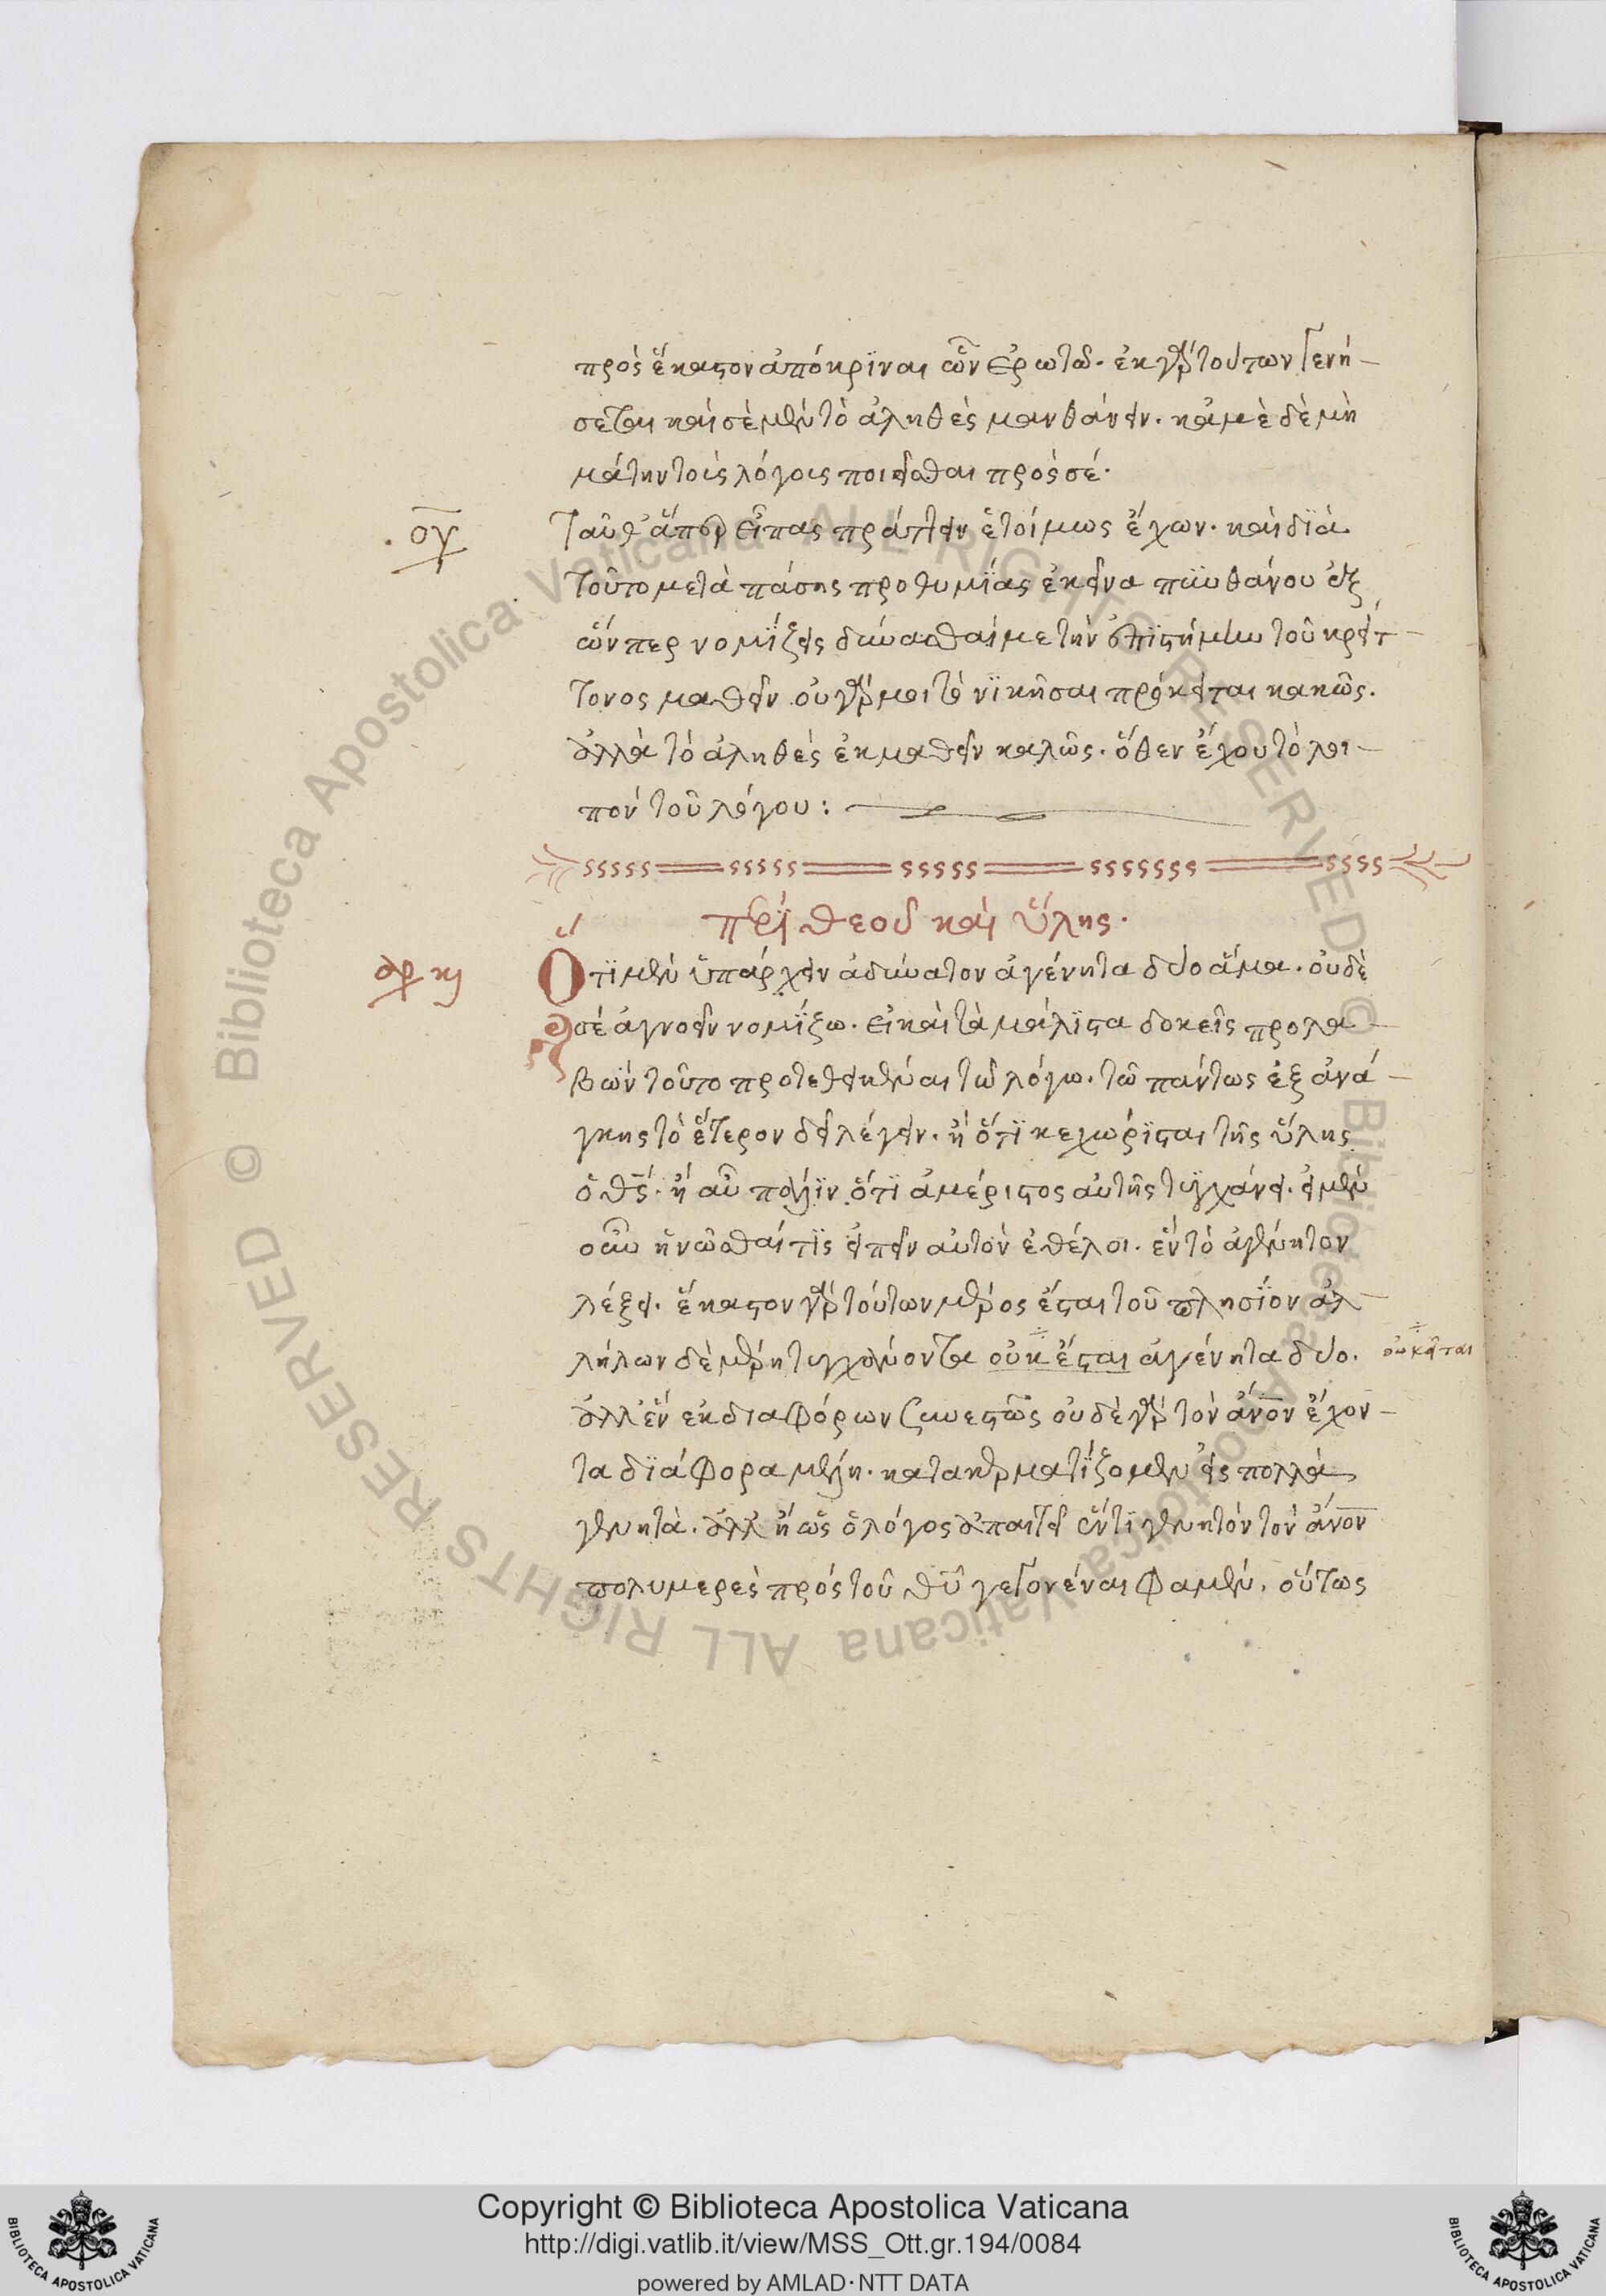 πρὸς ἕκαστον ἀπόκριναι ὧν ἐρωτῶ. ἐκ γὰρ τούτων γενή-
σεται καὶ σὲ μὲν τὸ ἀληθὲς μανθάνειν. κἀμὲ δὲ μὴ
μάτην τοὺς λόγους ποιεῖσθαι πρὸς σέ.
ογ
Ταῦθ' ἅπερ εἶπας πράττειν ἑτοίμως ἔχων. καὶ διὰ
τοῦτο μετὰ πάσης προθυμίας ἐκεῖνα πυνθάνου ἐξ
ὧνπερ νομίζεις δύνασθαί με τὴν ἐπιστήμην τοῦ κρείτ-
τονος μαθεῖν οὐ γάρ μοι τὸ νικῆσαι πρόκειται κακῶς.
ἀλλὰ τὸ ἀληθὲς ἐκμαθεῖν καλῶς. ὅθεν ἔχου τὸ λοι-
πόν τοῦ λόγου:
περὶ θεοῦ καὶ ὕλης.
Ὅτι μὲν ὑπάρχειν ἀδύνατον ἀγένητα δύο ἅμα. οὐδὲ
σὲ ἀγνοεῖν νομίζω. εἰ καὶ τὰ μάλιστα δοκεῖς προλα-
βὼν τοῦτο προτεθεικέναι τῶ λόγω. τῶ πάντως ἐξ ἀνά-
γκης τὸ ἕτερον δεῖ λέγειν. ἢ ὅτι κεχώρισται τῆς ὕλης
ὁ θς. ἢ αὖ πάλιν ὅτι ἀμέριστος αὐτῆς τυγχάνει. εἰ μὲν
οὖν ἡνῶσθαί τις εἰπεῖν αὐτὸν ἐθέλοι. ἓν τὸ ἀγένητον
λέξει. ἕκαστον γὰρ τούτων μέρος ἔσται τοῦ πλησίον ἀλ-
λήλων δὲ μέρη τυγχάνοντα οὐκ ἔσται ἀγένητα δύο.
ἀλλ' ἓν ἐκ διαφόρων συνεστὼς οὐδὲ γὰρ τὸν ἄνον ἔχον-
τα διάφορα μέλη. κατακερματίζομεν εἰς πολλὰ
γενητὰ. ἀλλ' ἢ ὡς ὁ λόγος ἀπαιτεῖ ἕν τι γενητὸν τὸν ἄνον
πολυμερὲς πρὸς τοῦ θῦ γεγονέναι φαμέν. οὕτως
Copyright © Biblioteca Apostolica Vaticana
http://digi.vatlib.it/view/MSS_Ott.gr.194/0084
powered by AMLAD·NTT DATA
BIBLIOTECA APOSTOLICA VATICANA
BIBLIOTECA APOSTOLICA VATICANA
© Biblioteca Apostolica Vaticana ALL RIGHTS RESERVED © Biblioteca Apostolica Vaticana ALL RIGHTS RESERVED